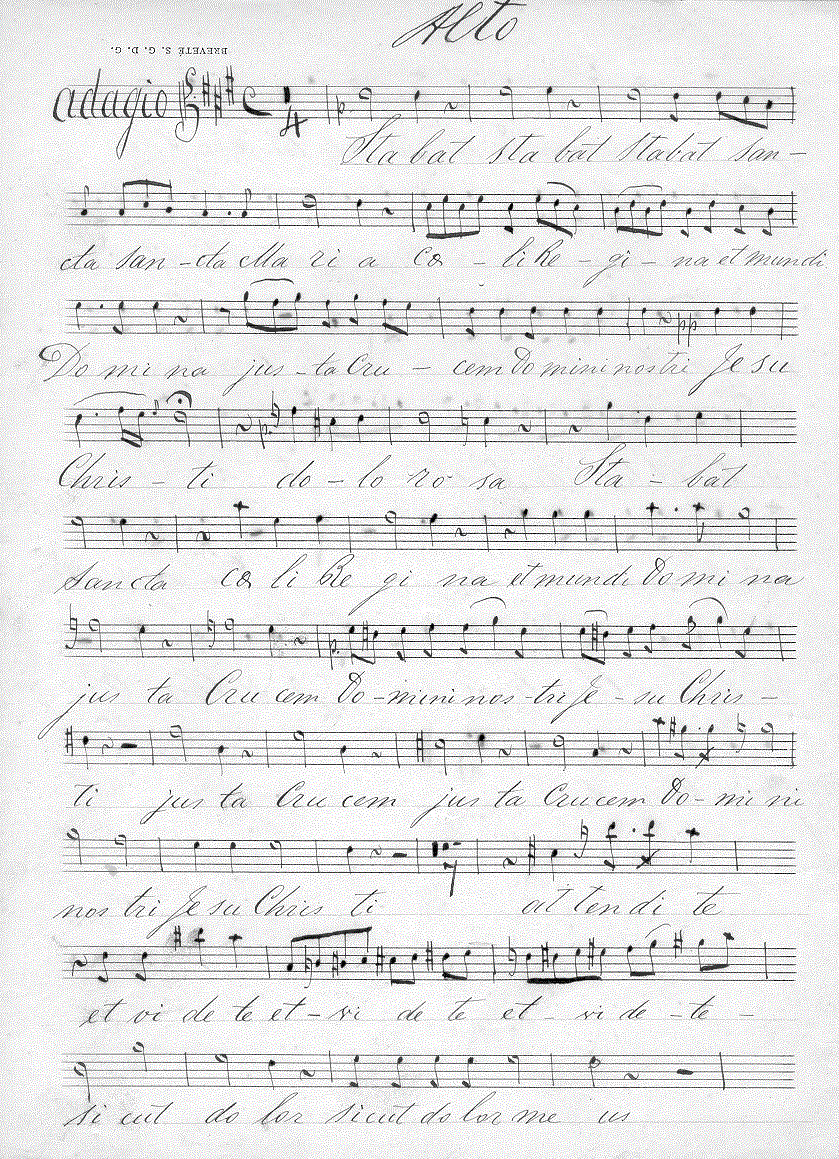 Alto
BREVETÉ S. G. D. G.
adagio
4
p.
Sta bat sta bat Stabat san-
cta san-cta Ma ri a cœ - li Re - gi - na et mundi
pp
Do mi na jus-ta Cru - cem Do mini nostri Je su
p.
Chris - ti do - lo ro sa Sta - bat
sancta cœ li Re gi na et mundi Do mi na
p.
jus ta Cru cem Do-mini nos-tri Je - su Chris -
ti jus ta Cru cem jus ta Crucem Do- mi ni
7
nos tri Je su Chris ti at ten di te
et vi de te et-vi de te et - vi de - te -
si cut do lor sicut do lor me us